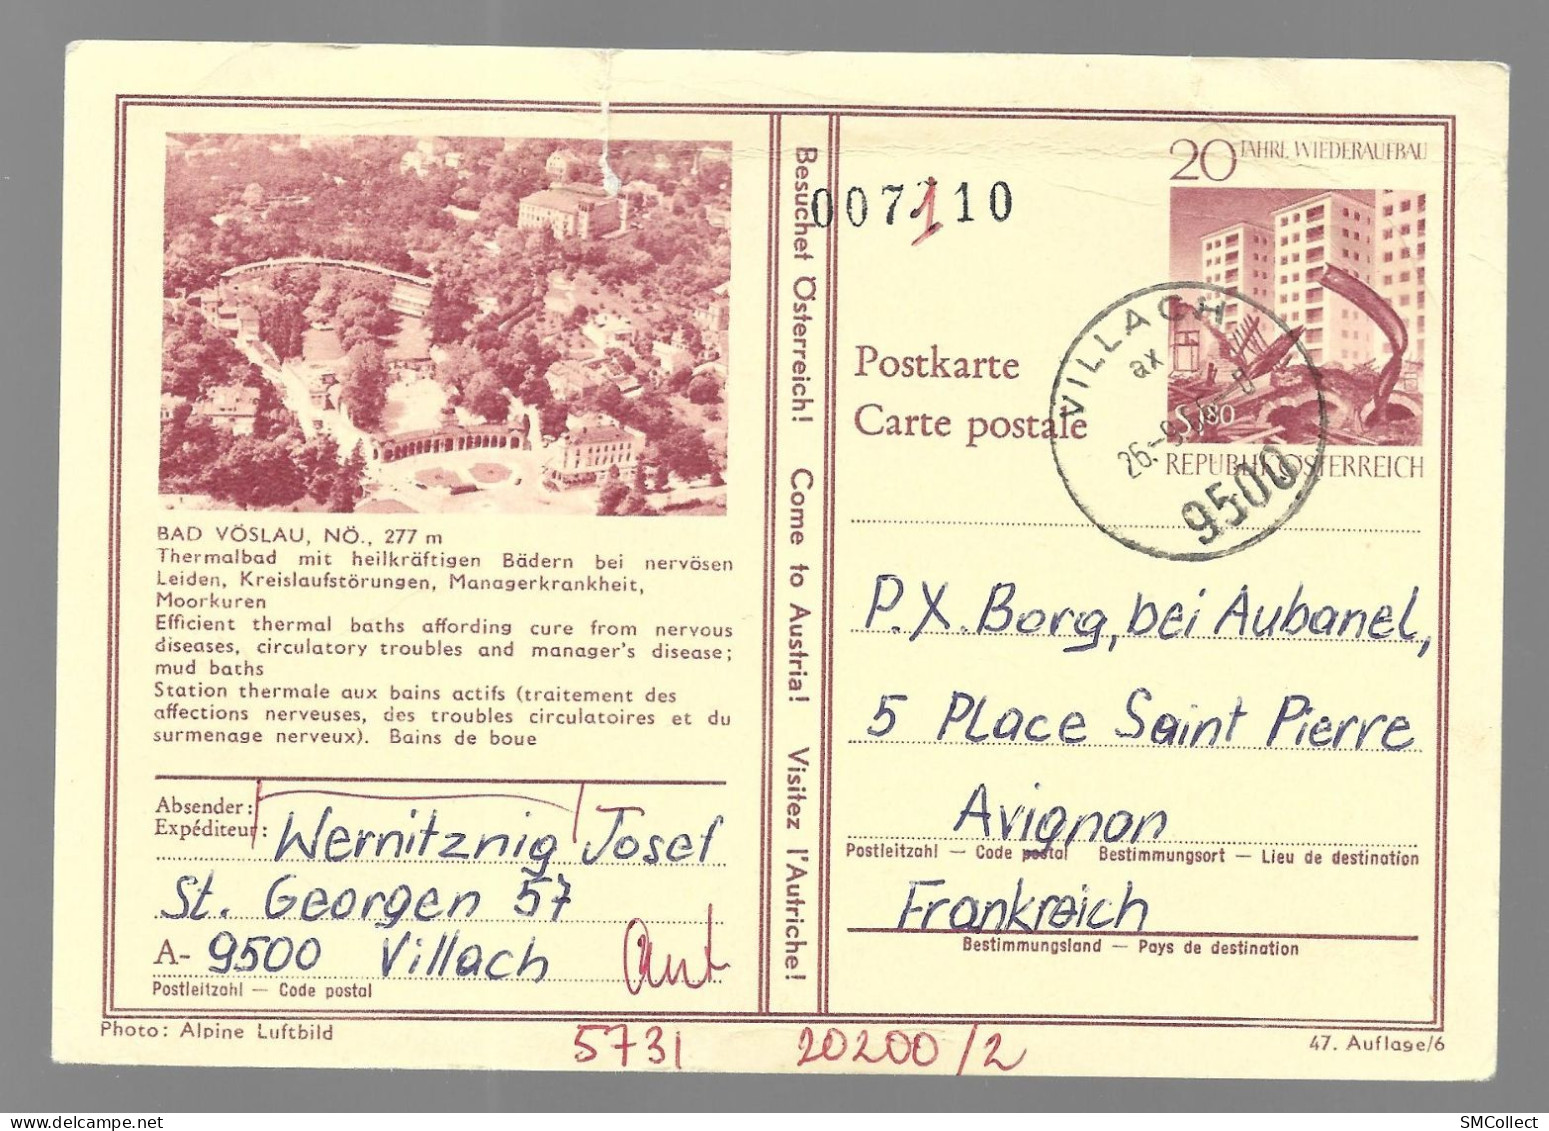 20 JAHRE WIEDERAUFBAU
007110
Besuchet Österreich! Come to Austria! Visitez l'Autriche!
VILLACH
ax
9500
S 1.80
REPUBLIK ÖSTERREICH
Postkarte
Carte postale
BAD VÖSLAU, NÖ., 277 m
Thermalbad mit heilkräftigen Bädern bei nervösen
Leiden, Kreislaufstörungen, Managerkrankheit,
Moorkuren
Efficient thermal baths affording cure from nervous
diseases, circulatory troubles and manager's disease;
mud baths
Station thermale aux bains actifs (traitement des
affections nerveuses, des troubles circulatoires et du
surmenage nerveux). Bains de boue
P. X. Borg, bei Aubanel,
5 Place Saint Pierre
Avignon
Postleitzahl — Code postal Bestimmungsort — Lieu de destination
Frankreich
Bestimmungsland — Pays de destination
Absender:
Expéditeur: Wernitznig Josef
St. Georgen 57
A- 9500 Villach
Postleitzahl — Code postal
Photo: Alpine Luftbild
5731 20200/2
47. Auflage/6
SMCollect